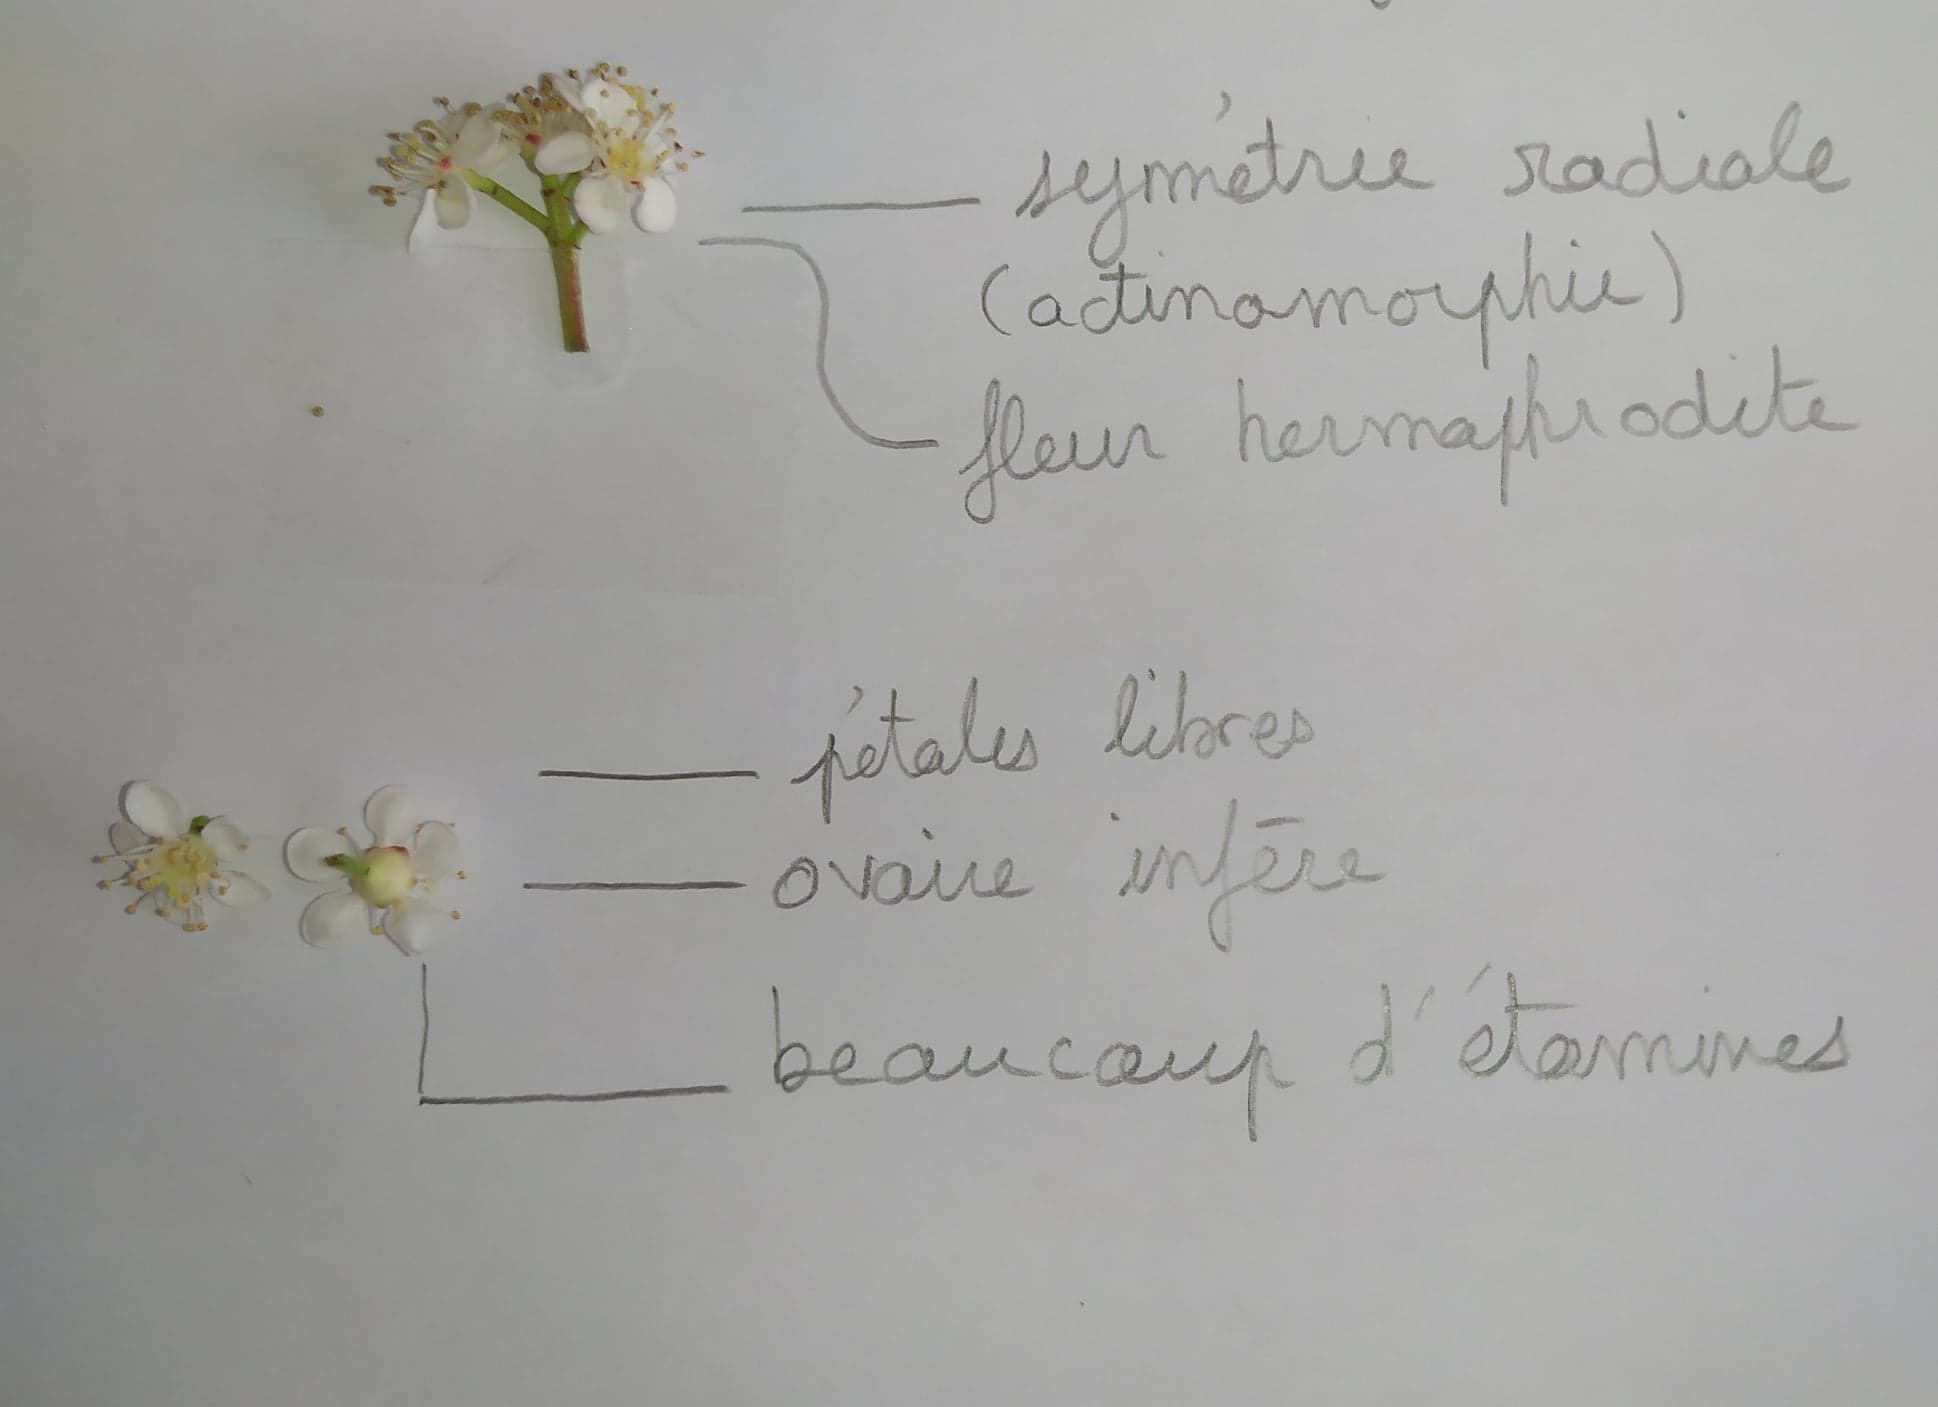 symétrie radiale
(actinomorphie)
fleur hermaphrodite
pétales libres
ovaire infère
beaucoup d'étamines